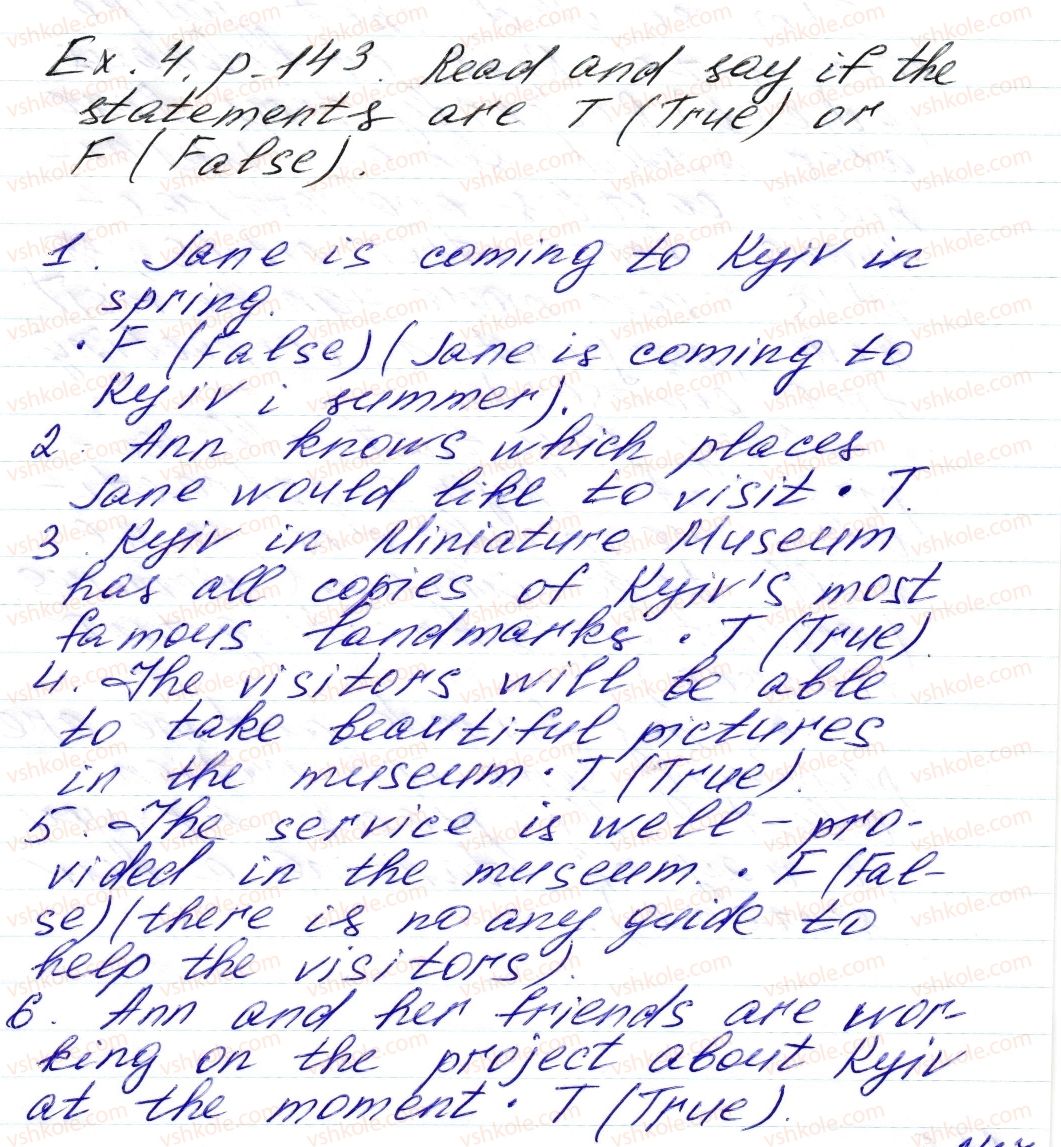 Ex. 4. p. 143. Read and say if the
statements are T (True) or
F (False).
1. Jane is coming to Kyiv in
spring.
• F (False) (Jane is coming to
Kyiv i summer).
2. Ann knows which places
Jane would like to visit • T.
3. Kyiv in Miniature Museum
has all copies of Kyiv's most
famous landmarks • T (True).
4. The visitors will be able
to take beautiful pictures
in the museum • T (True).
5. The service is well-pro-
vided in the museum. • F (Fal-
se) (there is no any guide to
help the visitors).
6. Ann and her friends are wor-
king on the project about Kyiv
at the moment • T (True).
vshkole.com